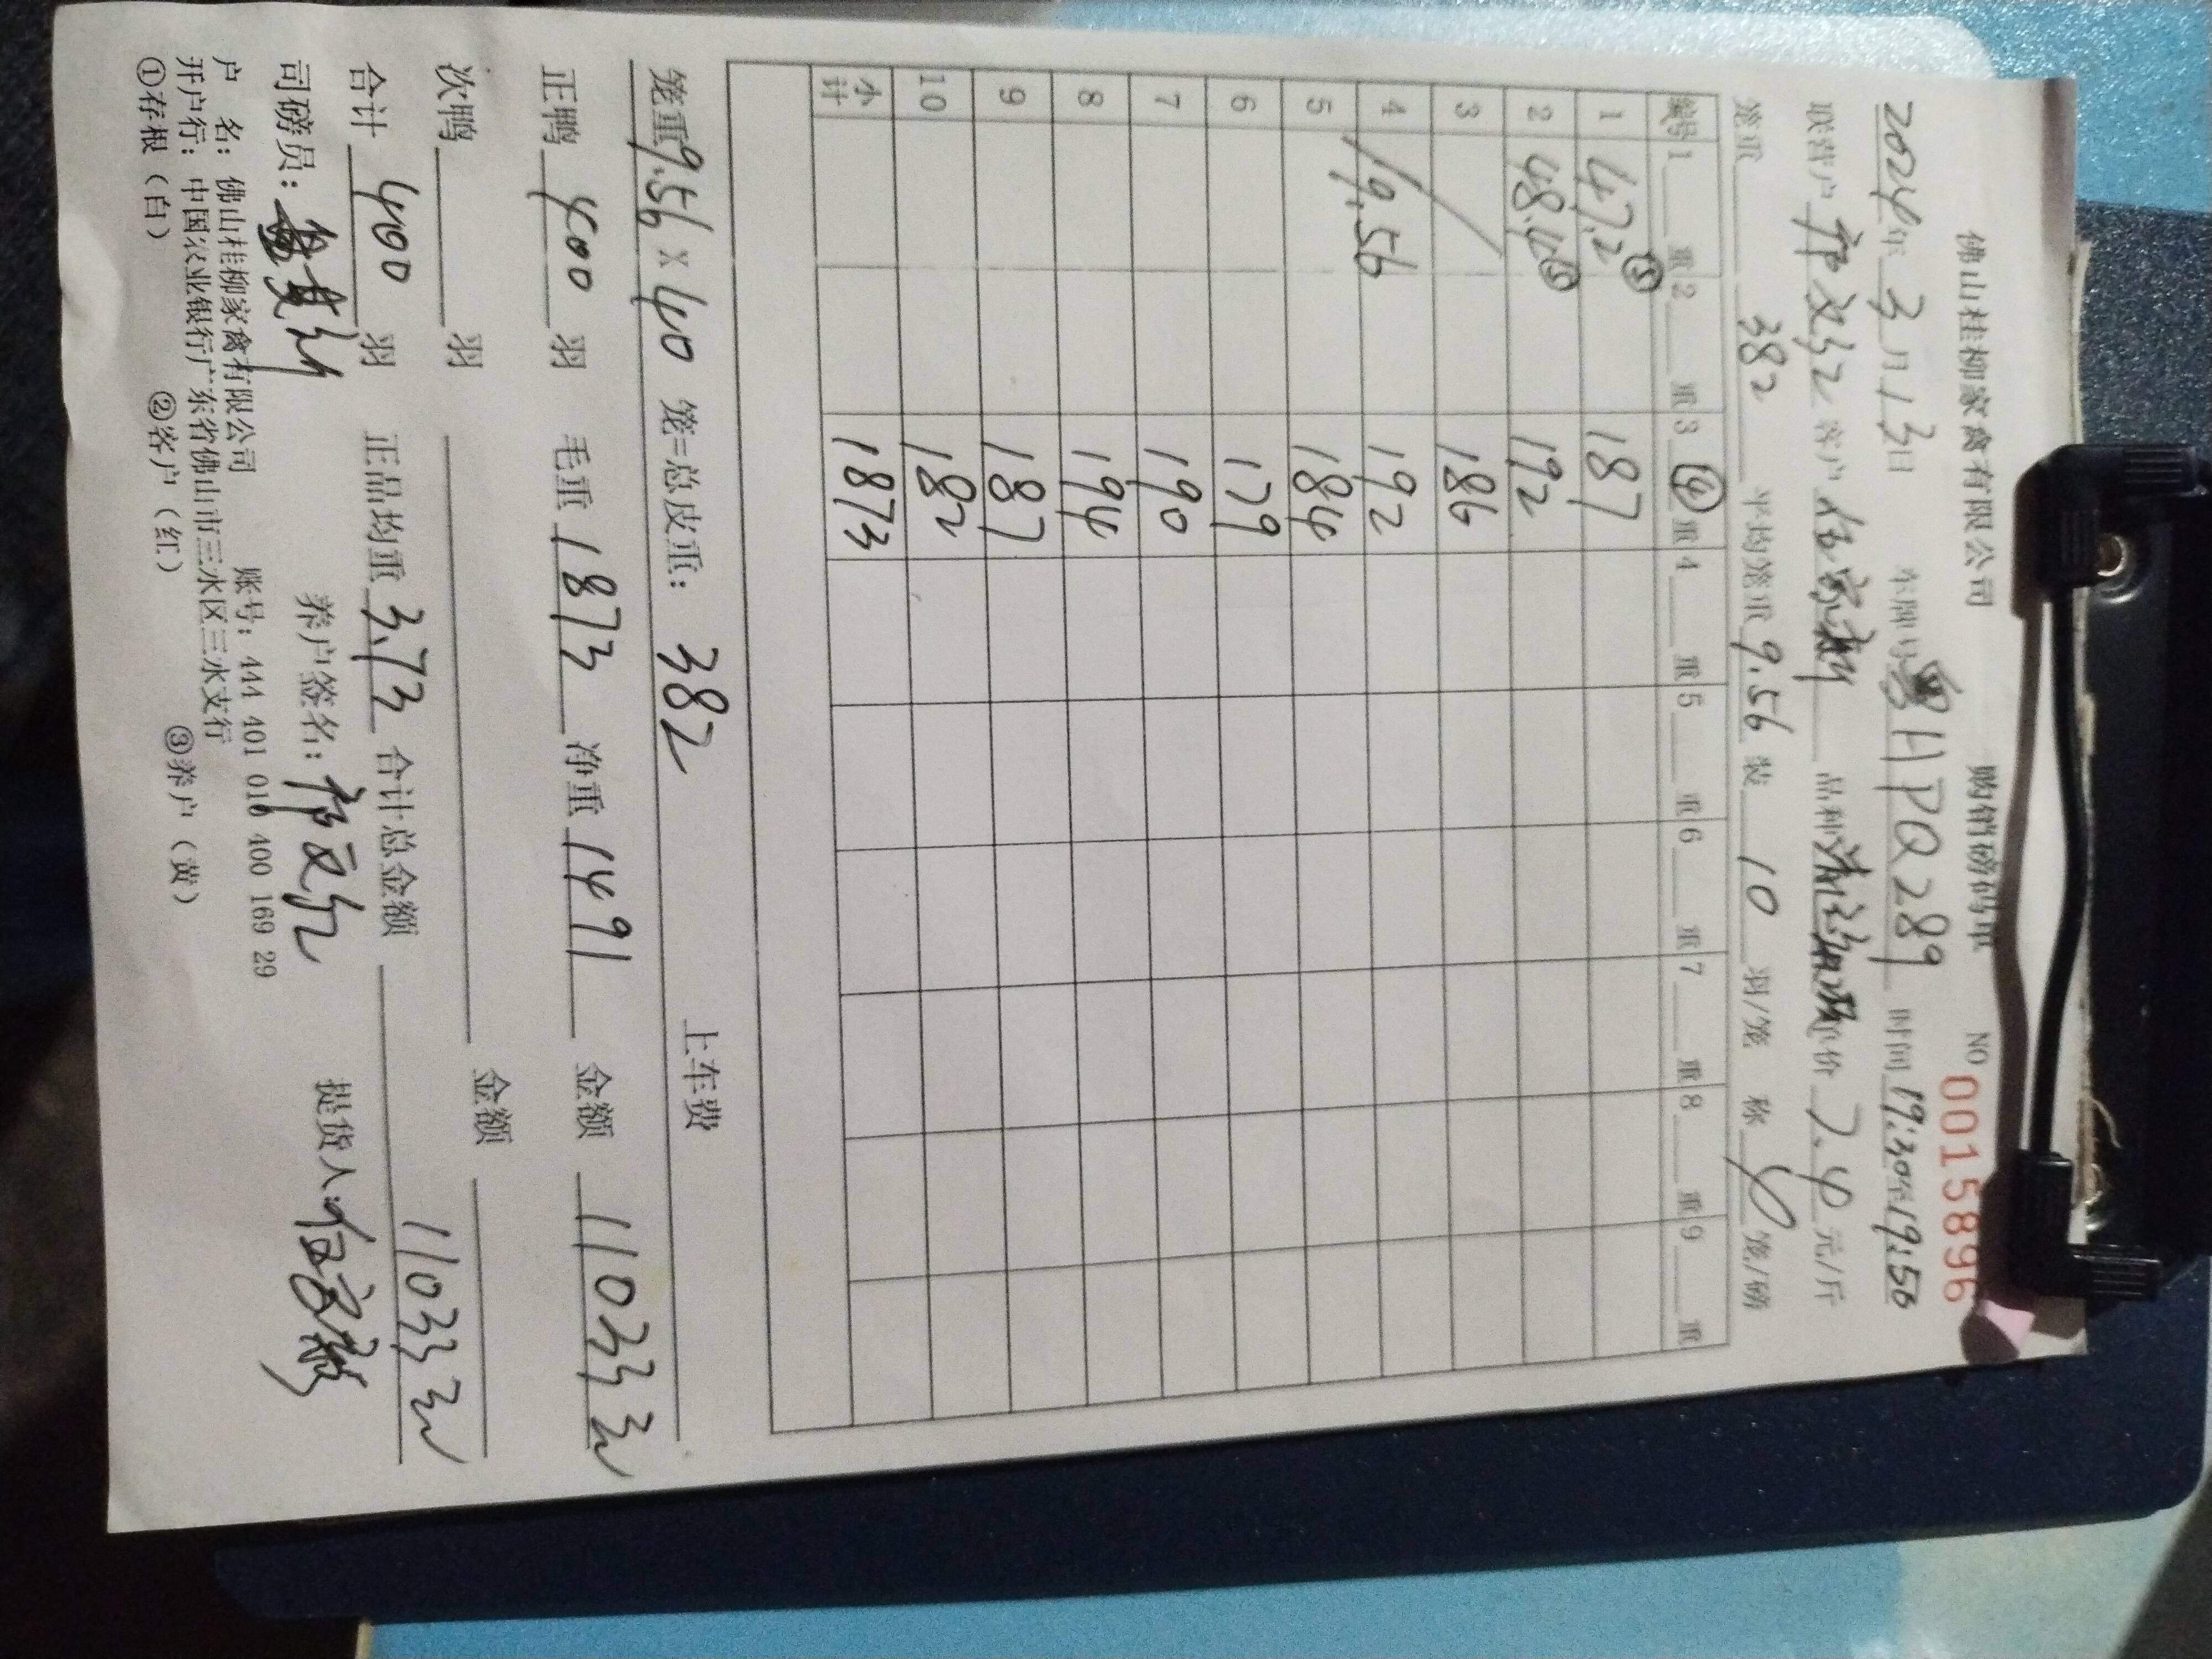 佛山桂柳家禽有限公司 购销磅码单 NO 0015896
2024年 3月13日 车牌号 粤HPQ289 时间 19:30至19:56
联营户 客户 伍家 品种 单价 7.4 元/斤
笼重 382 平均笼重 9.56 装 10 羽/笼 称 4 笼/磅
编号 1 重 2 重 3 ④ 重 4 重 5 重 6 重 7 重 8 重 9 重
1 47.2 ⑤ 187
2 48.4 ⑤ 192
3 186
4 9.56 192
5 184
6 179
7 190
8 194
9 187
10 182
小计 1873
笼重 9.56 × 40 笼=总皮重: 382 上车费
正鸭 400 羽 毛重 1873 净重 1491 金额 11033元
次鸭 羽 金额
合计 400 羽 正品均重 3.73 合计总金额 11033元
司磅员: 养户签名: 提货人:
户 名: 佛山桂柳家禽有限公司 账号: 444 401 010 400 169 29
开户行: 中国农业银行广东省佛山市三水区三水支行
①存根（白） ②客户（红） ③养户（黄）